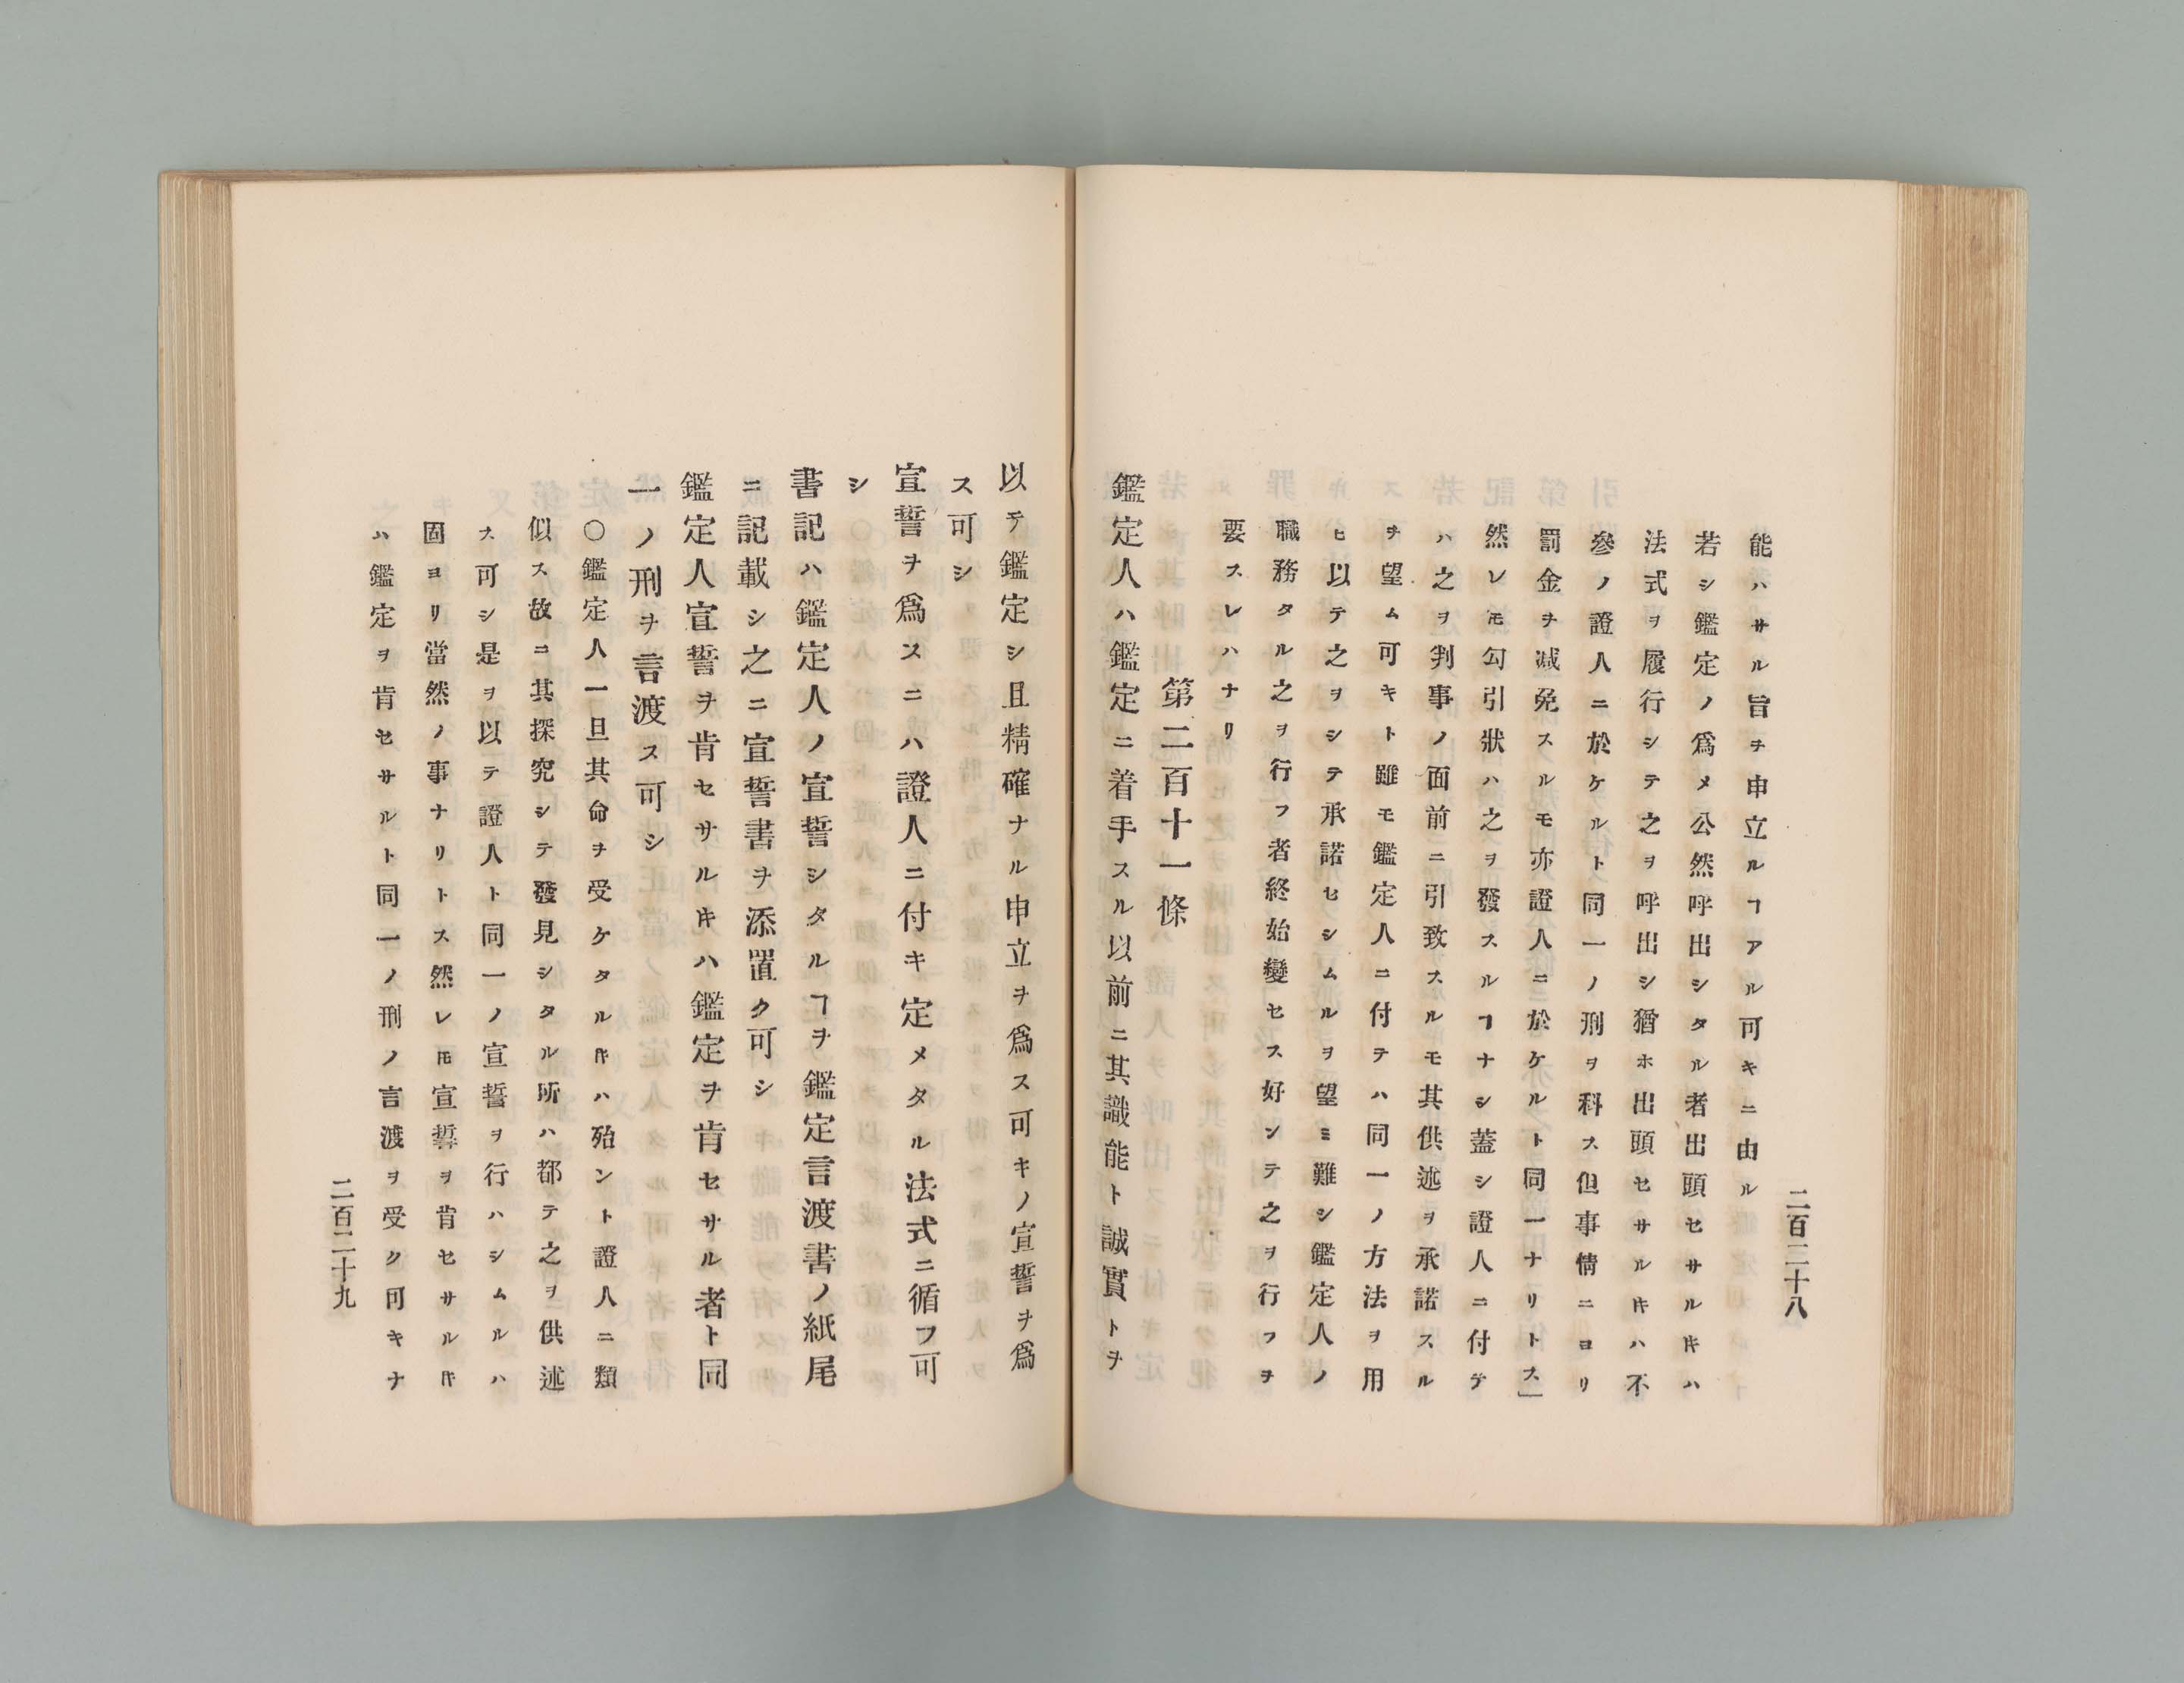 二百二十八
能ハサル旨ヲ申立ルヿアル可キニ由ル
若シ鑑定ノ爲メ公然呼出シタル者出頭セサルキハ
法式ヲ履行シテ之ヲ呼出シ猶ホ出頭セサルキハ不
參ノ證人ニ於ケルト同一ノ刑ヲ科ス但事情ニヨリ
罰金ヲ減免スルモ亦證人ニ於ケルト同一ナリトス」
然レ𪜈勾引狀ハ之ヲ發スルヿナシ蓋シ證人ニ付テ
ハ之ヲ判事ノ面前ニ引致スルモ其供述ヲ承諾スル
ヲ望ム可キト雖モ鑑定人ニ付テハ同一ノ方法ヲ用
ヒ以テ之ヲシテ承諾セシムルヲ望ミ難シ鑑定人ノ
職務タル之ヲ行フ者終始變セス好ンテ之ヲ行フヲ
要スレハナリ
第二百十一條
鑑定人ハ鑑定ニ着手スル以前ニ其識能ト誠實トヲ
以テ鑑定シ且精確ナル申立ヲ爲ス可キノ宣誓ヲ爲
ス可シ
宣誓ヲ爲スニハ證人ニ付キ定メタル法式ニ循フ可
シ
書記ハ鑑定人ノ宣誓シタルヿヲ鑑定言渡書ノ紙尾
ニ記載シ之ニ宣誓書ヲ添置ク可シ
鑑定人宣誓ヲ肯セサルキハ鑑定ヲ肯セサル者ト同
一ノ刑ヲ言渡ス可シ
〇鑑定人一旦其命ヲ受ケタルキハ殆ント證人ニ類
似ス故ニ其探究シテ發見シタル所ハ都テ之ヲ供述
ス可シ是ヲ以テ證人ト同一ノ宣誓ヲ行ハシムルハ
固ヨリ當然ノ事ナリトス然レ𪜈宣誓ヲ肯セサルキ
ハ鑑定ヲ肯セサルト同一ノ刑ノ言渡ヲ受ク可キナ
二百二十九